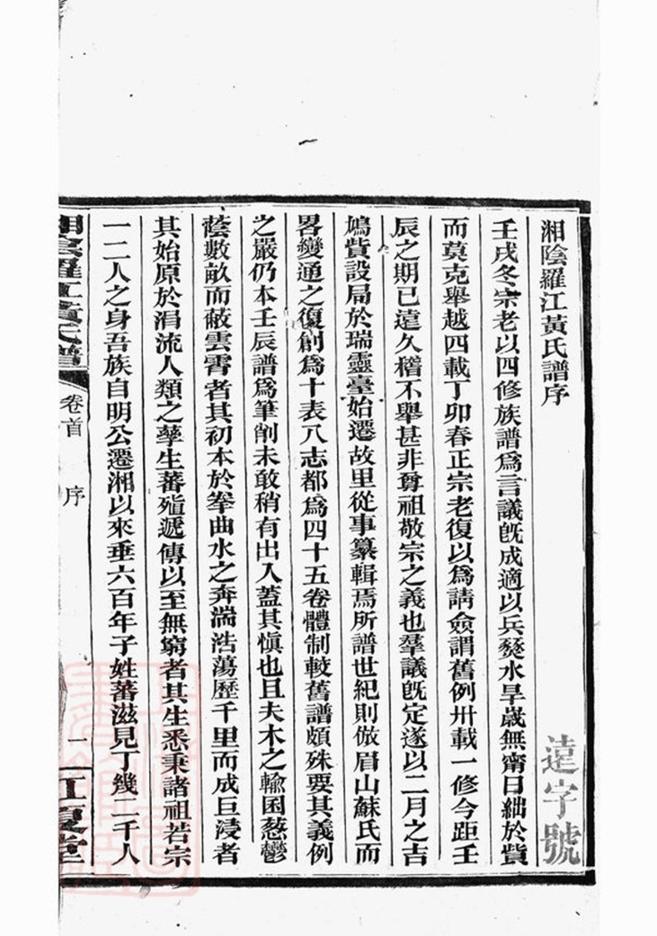 湘陰羅江黃氏譜序
遠字號
壬戌冬宗老以四修族譜爲言議旣成適以兵燹水旱歲無甯日絀於貲
而莫克舉越四載丁卯春正宗老復以爲請僉謂舊例卅載一修今距壬
辰之期已遠久稽不舉甚非尊祖敬宗之義也羣議旣定遂以二月之吉
鳩貲設局於瑞靈臺始遷故里從事纂輯焉所譜世紀則倣眉山蘇氏而
畧變通之復創爲十表八志都爲四十五卷體制較舊譜頗殊要其義例
之嚴仍本壬辰譜爲筆削未敢稍有出入蓋其愼也且夫木之輪囷葱鬱
蔭數畝而蔽雲霄者其初本於拳曲水之奔湍浩蕩歷千里而成巨浸者
其始原於涓流人類之孳生蕃殖遞傳以至無窮者其生悉秉諸祖若宗
一二人之身吾族自明公遷湘以來垂六百年子姓蕃滋見丁幾二千人
湘陰羅江黃氏譜
卷首 序
一
江夏堂